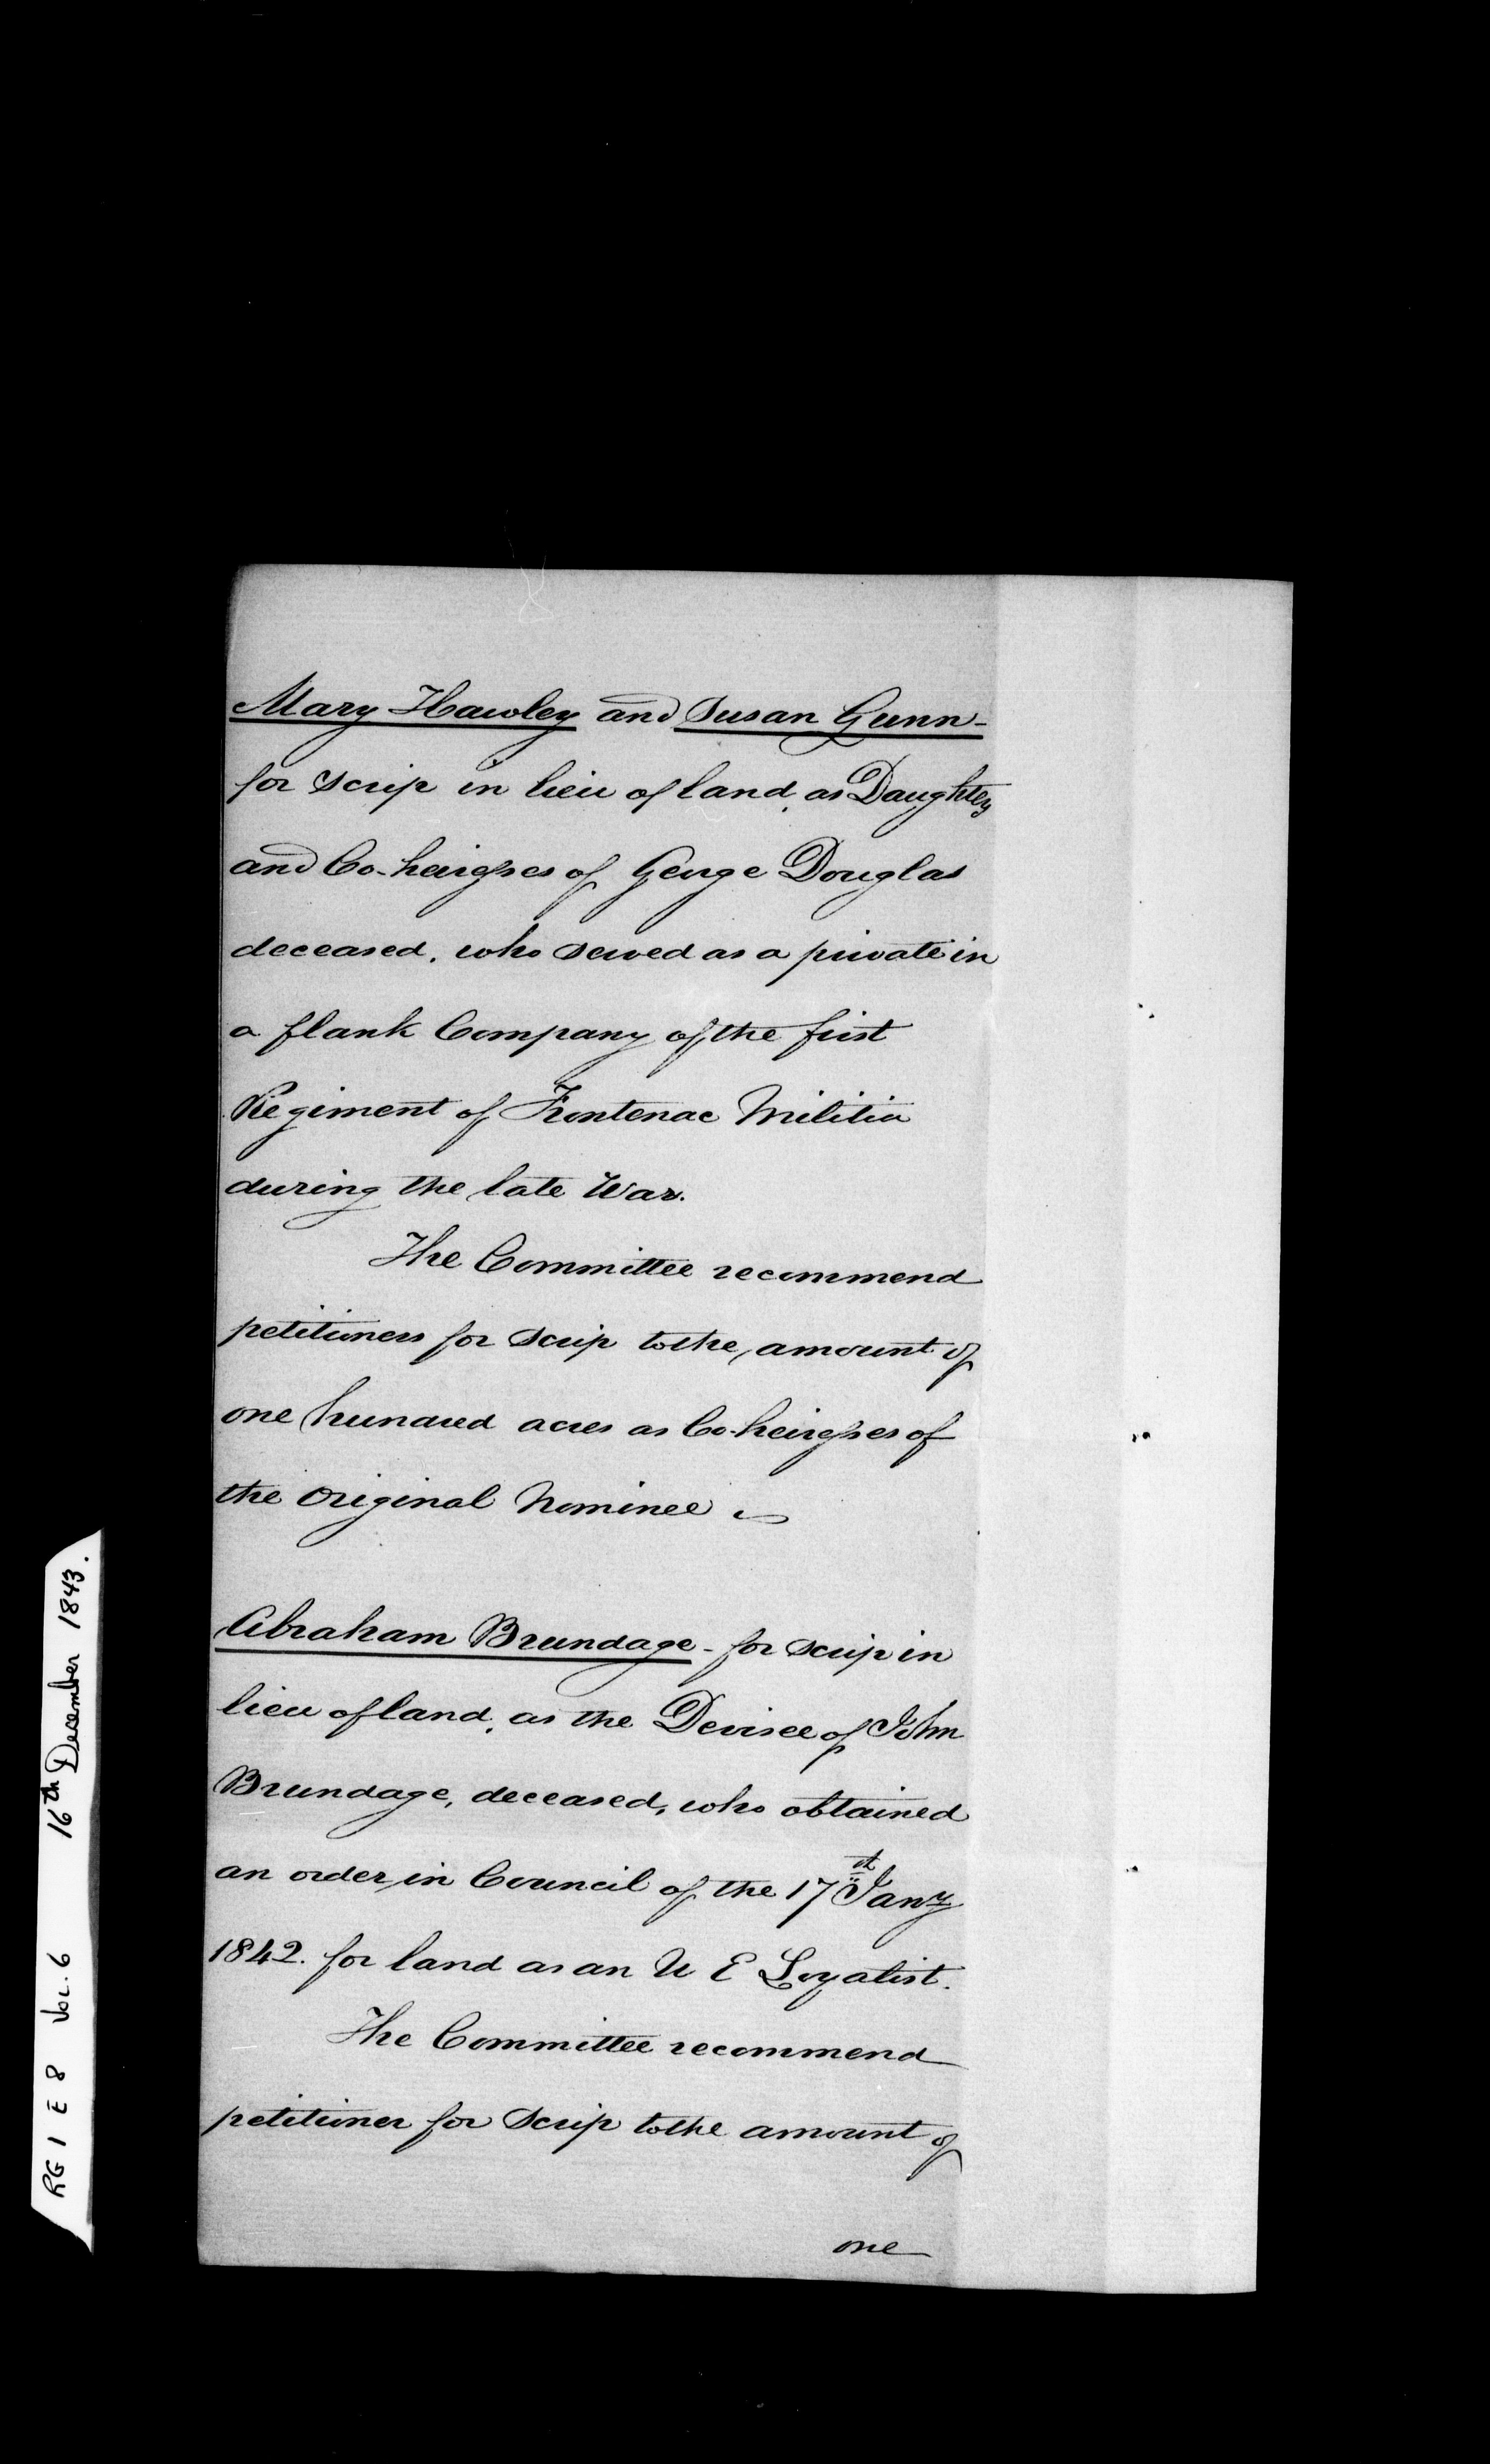 Mary Hawley and Susan Gunn -
for Scrip in lieu of land, as Daughters
and Co-heiresses of George Douglas
deceased, who served as a private in
a flank Company of the first
Regiment of Frontenac Militia
during the late War.
The Committee recommend
petitioners for Scrip to the amount of
one hundred acres as Co-heiresses of
the Original Nominee
Abraham Brundage - for Scrip in
lieu of land, as the Devisee of John
Brundage, deceased, who obtained
an order in Council of the 17th Jany
1842. for land as an U E Loyalist.
The Committee recommend
petitioner for Scrip to the amount of
one
RG 1 E 8 Vol. 6 16th December 1843.